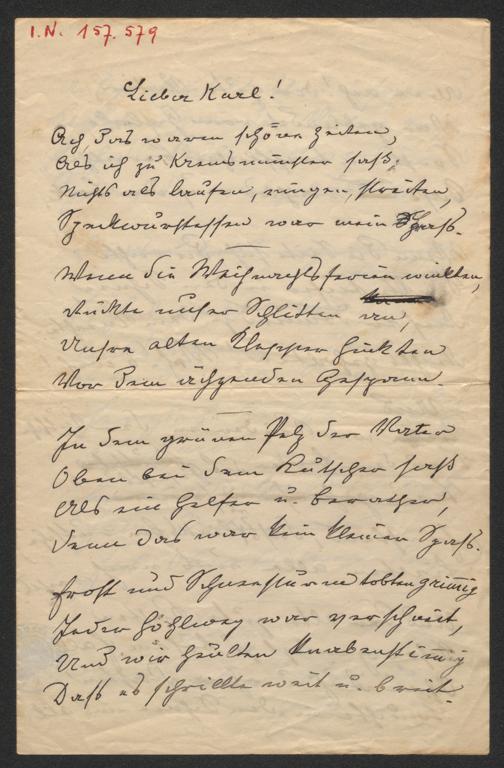 I.N. 157.579
Lieber Karl!
Ach, das waren schöne Zeiten,
Als ich zu Kremsmünster saß;
Nichts als laufen, ringen, streiten,
Speckwurstessen war mein Spaß.
Wenn die Weihnachtsferien winkten,
Rückte unser Schlitten an,
Unsre alten Klepper hinkten
Vor dem ächzenden Gespann.
In dem grünen Pelz der Vater
Oben bei dem Kutscher saß
Als ein Helfer u. Berather,
Denn das war kein kleiner Spaß.
Frost und Schneestürme tobten grimig
Jeder Hohlweg war verschneit,
Und wir heulten knabenstimig
Daß es schrillte weit u. breit.